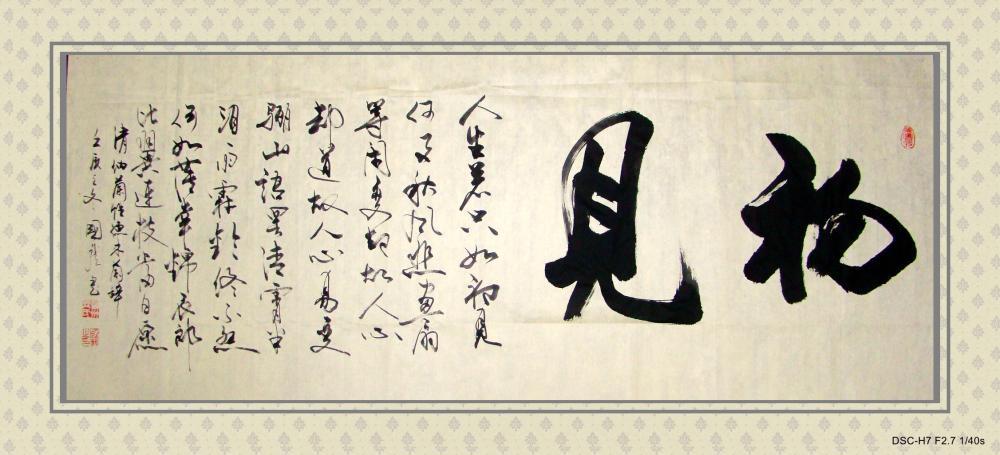 初見
人生若只如初見
何事秋風悲畫扇
等閑變却故人心
却道故人心易變
驪山語罷清宵半
泪雨霖鈴終不怨
何如薄幸錦衣郎
比翼連枝當日願
清納蘭性德木蘭辞
DSC-H7 F2.7 1/40s